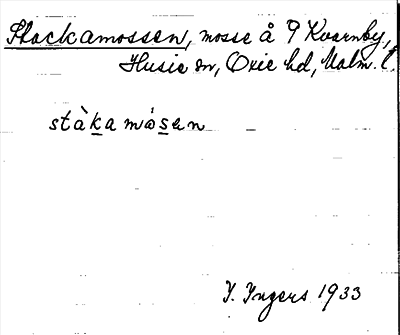 Stackamossen, mosse å 9 Kvarnby,
Husie sn, Oxie hd, Malm. l.
stàka mòsen
I. Ingers 1933